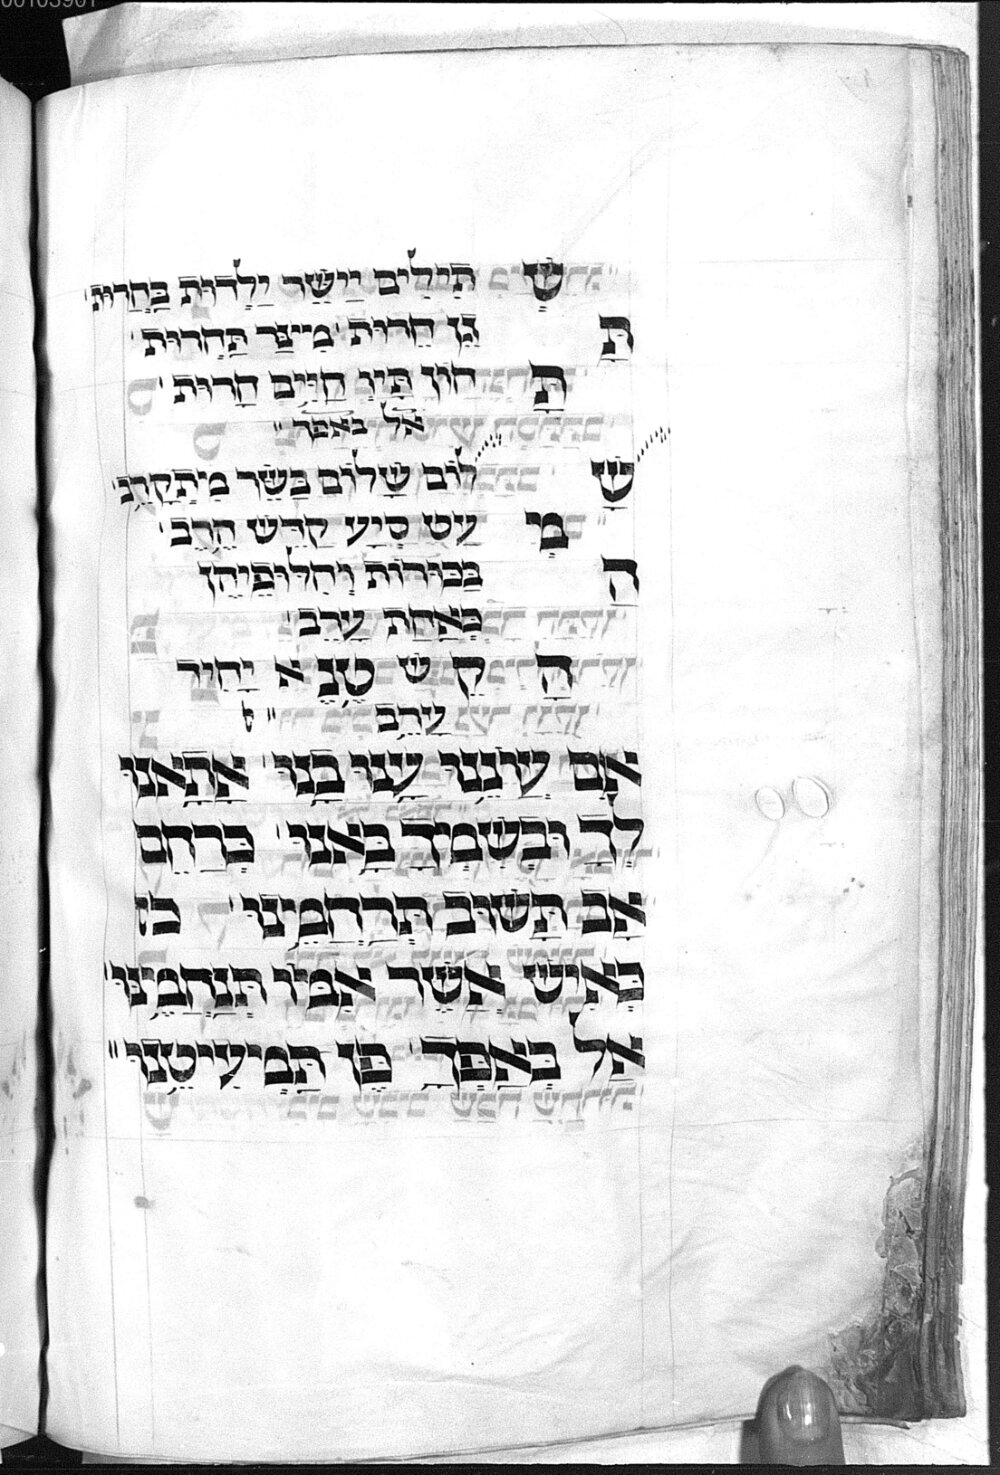 שָׁ תִילִים יְיַשֵּׁר יַלְדוּת בַּחֲרוּת'
תְּ גֵן חֵרוּת מִיינַּר תַּחֲרוּת'
תַּ חוֹן תָּיו חַיִּים חָרוּת'
אל באפך"
שָׁ לוֹם שָׁלוֹם בַּשֵּׂר מִתְקָרֵב'
מְ עַט סִיַע קֹדֶשׁ הֶרֶב'
הַ בְּכוֹרוֹת וְחִלּוּפֵיהֶן
בְּאַחַת עֶרֶב'
הַ קָ שׁ טָנֵ א יָחִיד
עֶרֶב"
אִם עֲוֹנֵינוּ עָנוּ בָנוּ' אָתָאנוּ
לְךָ וּבְשִׁמְךָ בָאנוּ' כְּרַחֵם
אָב תָּשׁוּב תְּרַחֲמֵינוּ'
כְּאִישׁ אֲשֶׁר אִמּוֹ תְּנַחֲמֵינוּ'
אַל בְּאַפְּךָ' פֶּן תַּמְעִיטֵנוּ"